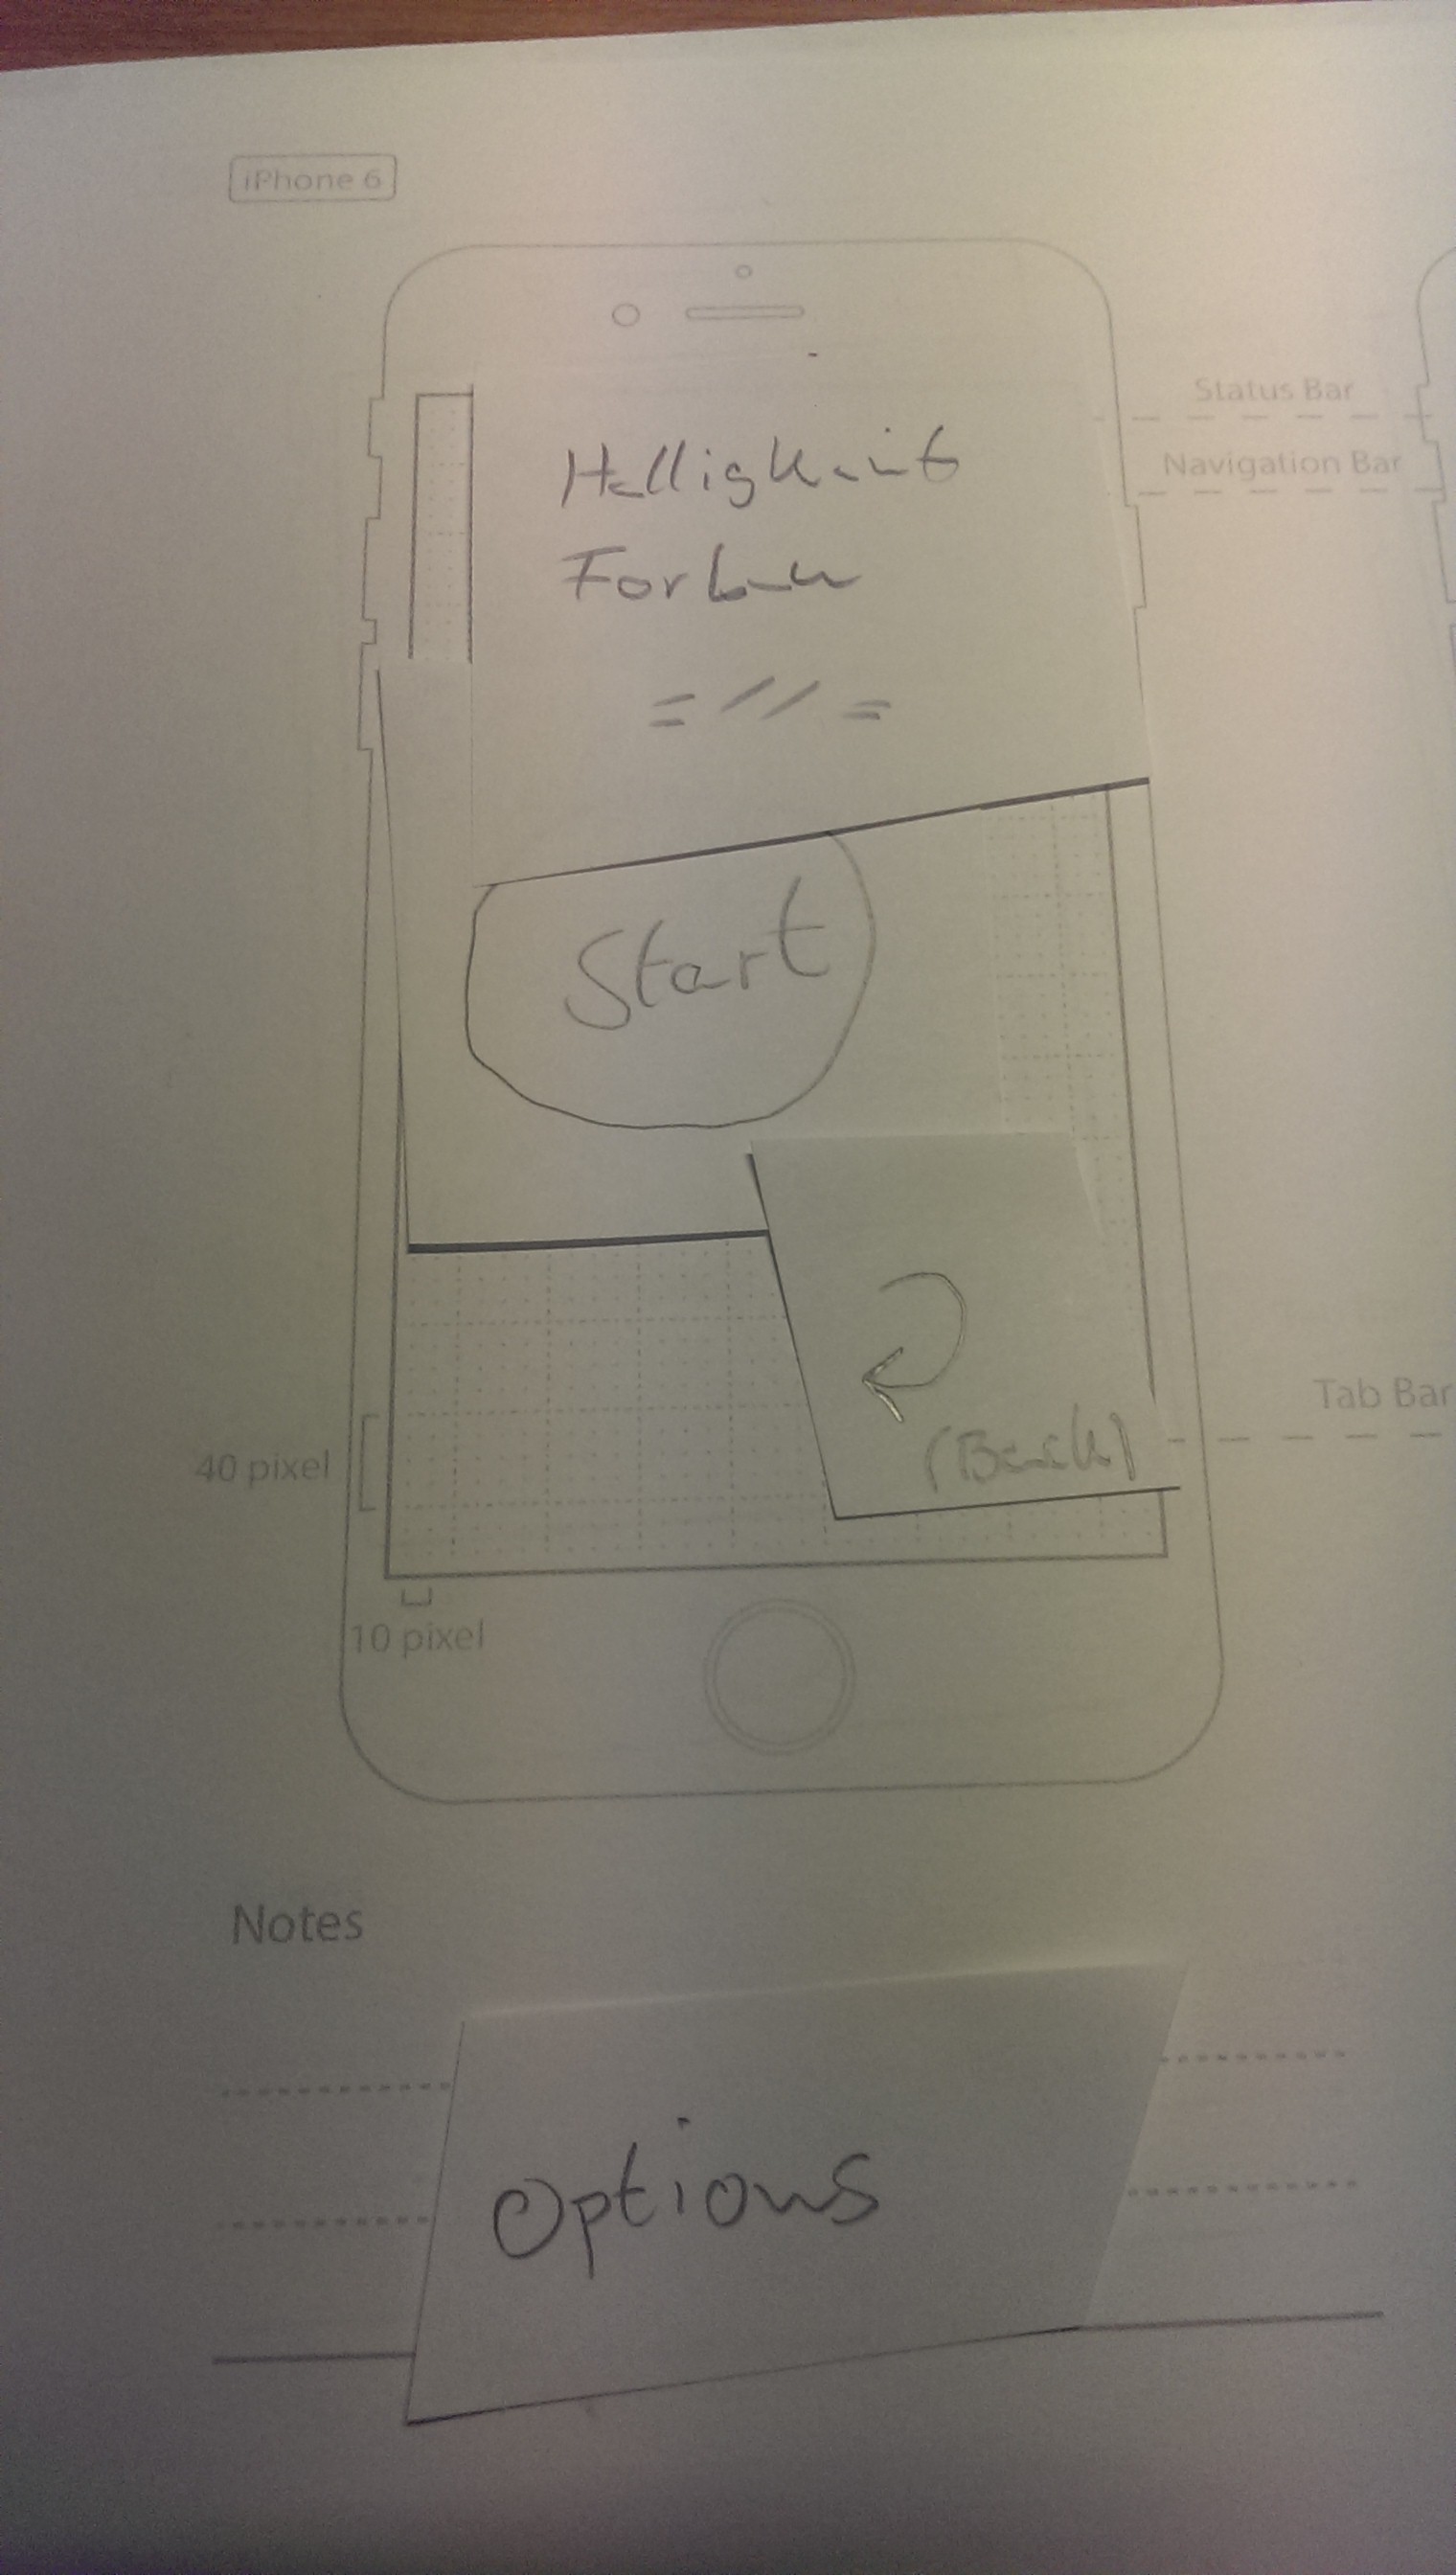 iPhone 6
Status Bar
Navigation Bar
Helligkeit
Farben
Start
(Back)
Tab Bar
40 pixel
10 pixel
Notes
Options